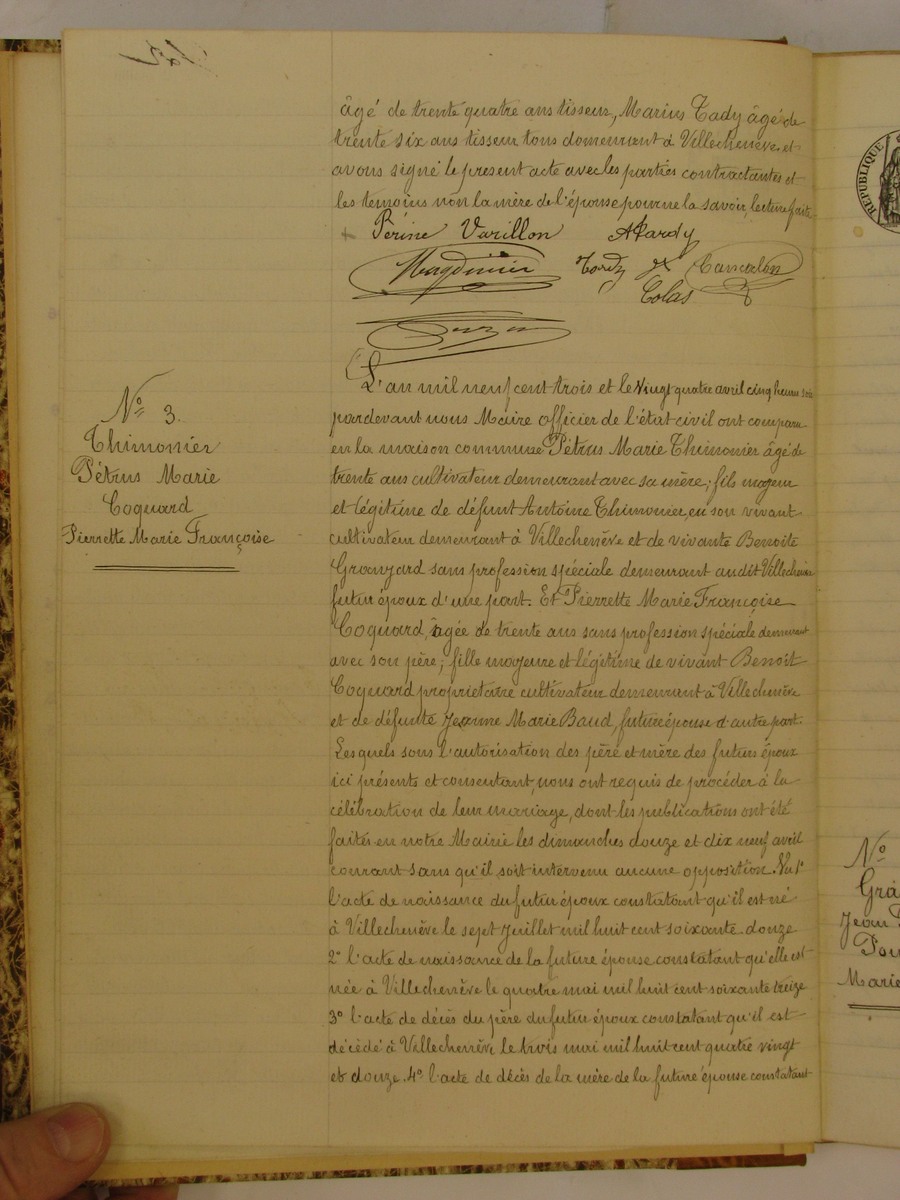 âgé de trente quatre ans tisseur, Marius Tady âgé de
trente six ans tisseur tous demeurant à Villechenève et
avons signé le présent acte avec les parties contractantes et
les témoins non la mère de l'épouse pour ne la savoir, lecture faite
Périne Varillon APardy
Magdinier Tardy Cancalon
Colas
L'an mil neuf cent trois et le vingt quatre avril cinq heures soir
pardevant nous Maire officier de l'état civil ont comparu
en la maison commune Pétrus Marie Thimonier âgé de
trente ans cultivateur demeurant avec sa mère; fils majeur
et légitime de défunt Antoine Thimonier, en son vivant
cultivateur demeurant à Villechenève et de vivante Benoite
Granjard sans profession spéciale demeurant audit Villechenève
futur époux d'une part. Et Pierrette Marie Françoise
Coquard, âgée de trente ans sans profession spéciale demeurant
avec son père; fille majeure et légitime de vivant Benoît
Coquard propriétaire cultivateur demeurant à Villechenève
et de défunte Jeanne Marie Baud, future épouse d'autre part.
Lesquels sous l'autorisation des père et mère des futurs époux
ici présents et consentant, nous ont requis de procéder à la
célébration de leur mariage, dont les publications ont été
faites en notre Mairie les dimanches douze et dix neuf avril
courant sans qu'il soit intervenu aucune opposition. Vu 1°
l'acte de naissance du futur époux constatant qu'il est né
à Villechenève le sept Juillet mil huit cent soixante douze
2° l'acte de naissance de la future épouse constatant qu'elle est
née à Villechenève le quatre mai mil huit cent soixante treize
3° l'acte de décès du père du futur époux constatant qu'il est
décédé à Villechenève le trois mai mil huit cent quatre vingt
et douze. 4° l'acte de décès de la mère de la future épouse constatant
N° 3.
Thimonier
Pétrus Marie
Coquard
Pierrette Marie Françoise
REPUBLIQUE
N°
Gra
Jean
Marie